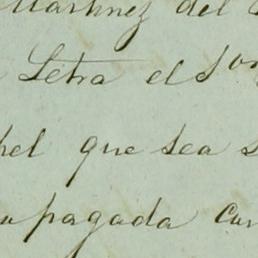 Martinez del
Letra el Son
pel que sea
pagada